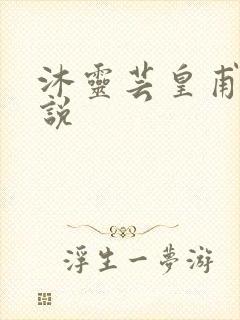 沐靈芸皇甫
說
浮生一夢游